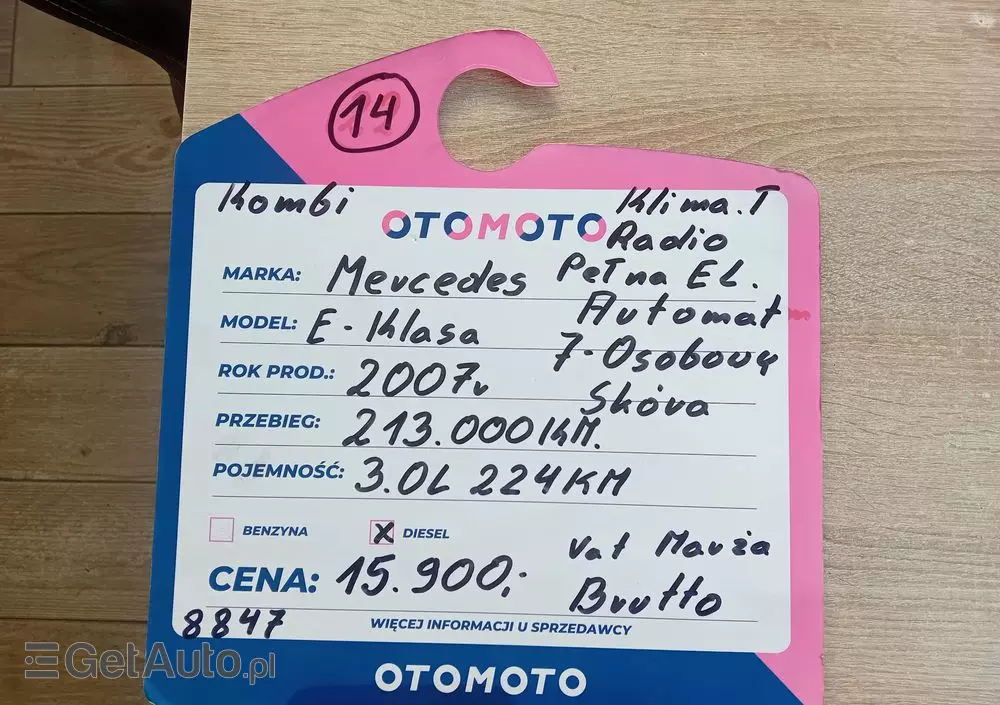 14
Kombi
Klima.T
OTOMOTO
Radio
MARKA: Mercedes
Pełna EL.
MODEL: E-Klasa
Automat
7-Osobowy
ROK PROD.: 2007r
Skóra
PRZEBIEG: 213.000KM.
POJEMNOŚĆ: 3.0L 224KM
BENZYNA X DIESEL
Vat Marża
CENA: 15.900,-
Brutto
8847
WIĘCEJ INFORMACJI U SPRZEDAWCY
GetAuto.pl
OTOMOTO